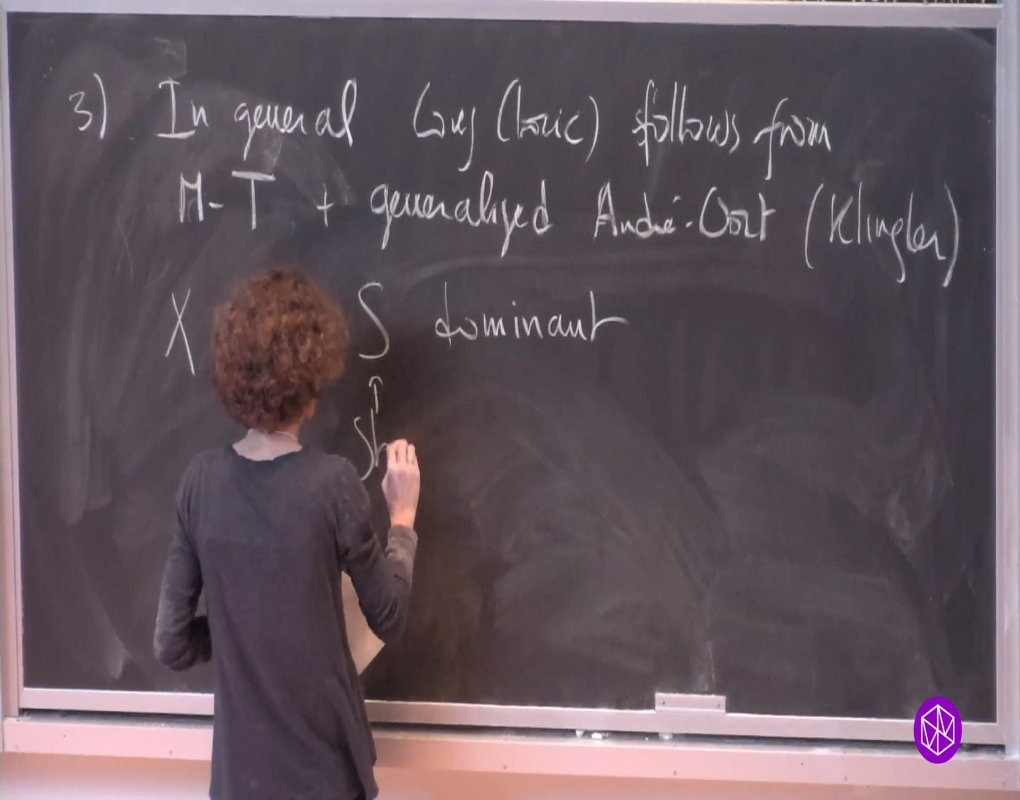 3) In general Conj (toric) follows from
M-T + generalized André-Oort (Klingler)
X S dominant
↑
Sh